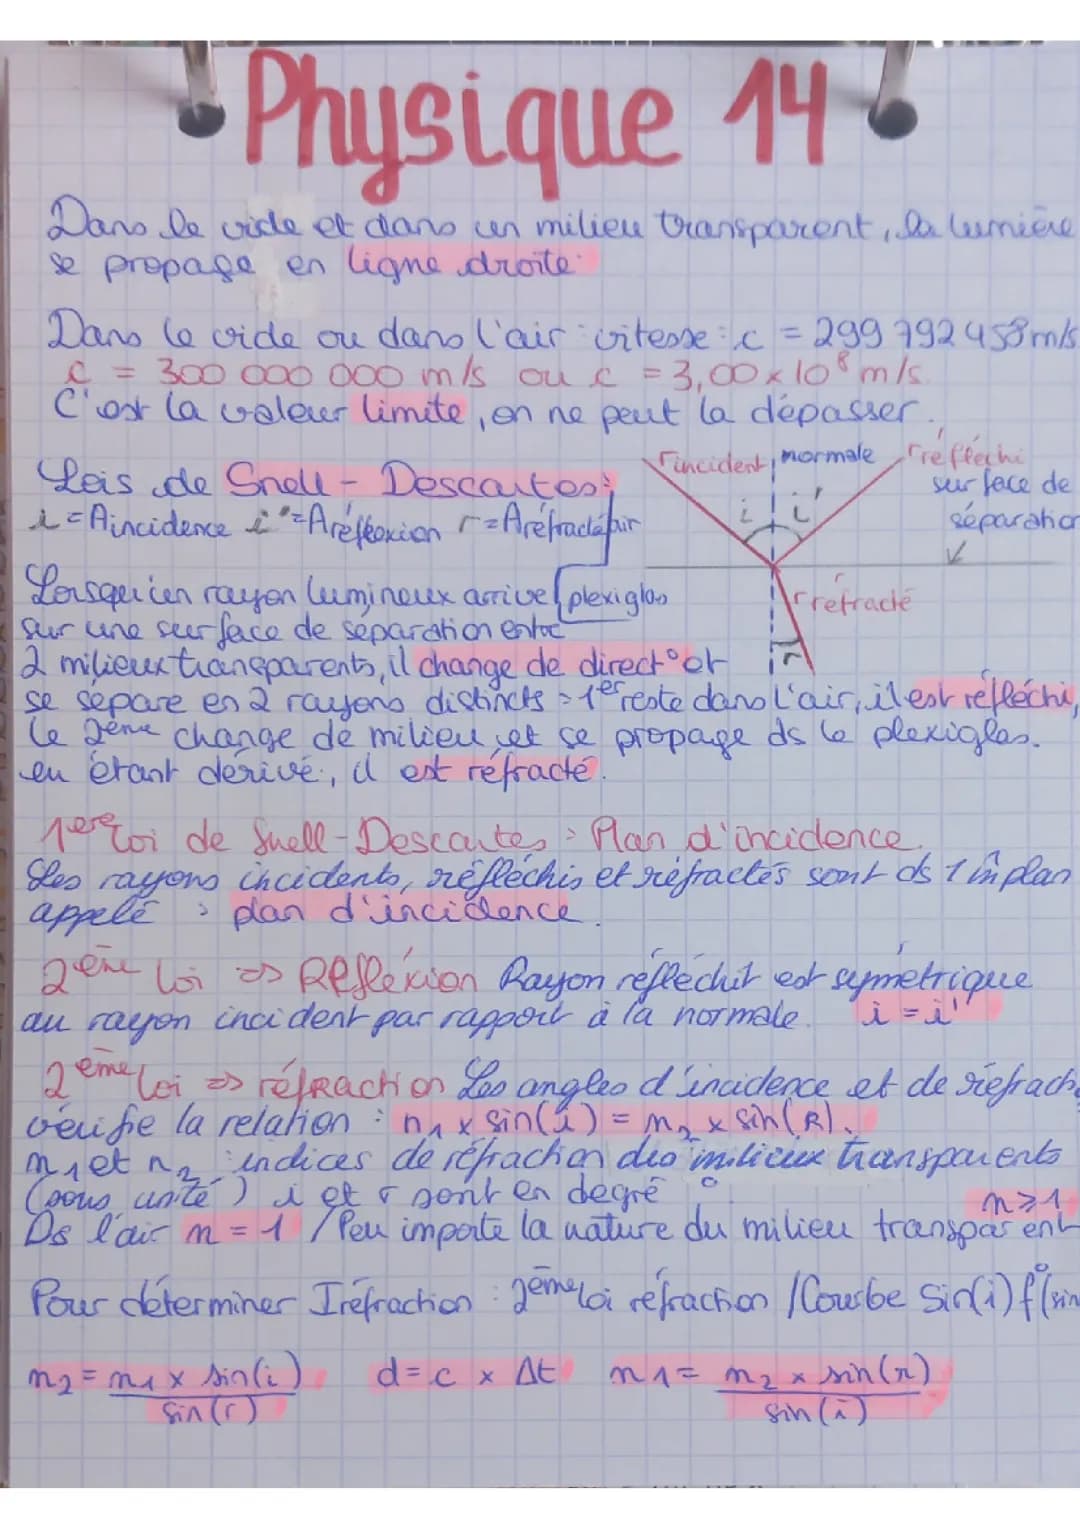 Physique 14
Dans le vide et dans un milieu transparent, la lumière
se propage en ligne droite.
Dans le vide ou dans l'air : vitesse : c = 299 792 458 m/s
c = 300 000 000 m/s ou c = 3,00 x 10⁸ m/s.
C'est la valeur limite, on ne peut la dépasser.
r incident normale r réfléchi
surface de
séparation
Lois de Snell - Descartes :
i = A incidence i' = A réflexion r = A réfracté
air
i i'
plexiglas
r réfracté
r
Lorsqu'un rayon lumineux arrive
sur une surface de séparation entre
2 milieux transparents, il change de direct° et
se sépare en 2 rayons distincts : 1er reste dans l'air, il est réfléchi,
le 2ème change de milieu et se propage ds le plexiglas.
en étant dérivé, il est réfracté.
1ere loi de Snell-Descartes : Plan d'incidence.
Les rayons incidents, réfléchis et réfractés sont ds 1 m̂ plan
appelé : plan d'incidence.
2ème loi => Réflexion Rayon réfléchit est symétrique
au rayon incident par rapport à la normale. i = i'
2ème loi => réfraction Les angles d'incidence et de réfract
vérifie la relation : n₁ x sin(i) = n₂ x sin(R).
n₁ et n₂ : indices de réfraction des milieux transparents
(sous unité) i et r sont en degré °
n ⩾ 1
Ds l'air n = 1 / Peu importe la nature du milieu transparent
Pour déterminer Iréfraction : 2ème loi réfraction / Courbe Sin(i) f°(sin
n₂ = n₁ x sin(i) / sin(r) d = c x Δt n₁ = n₂ x sin(r) / sin(i)